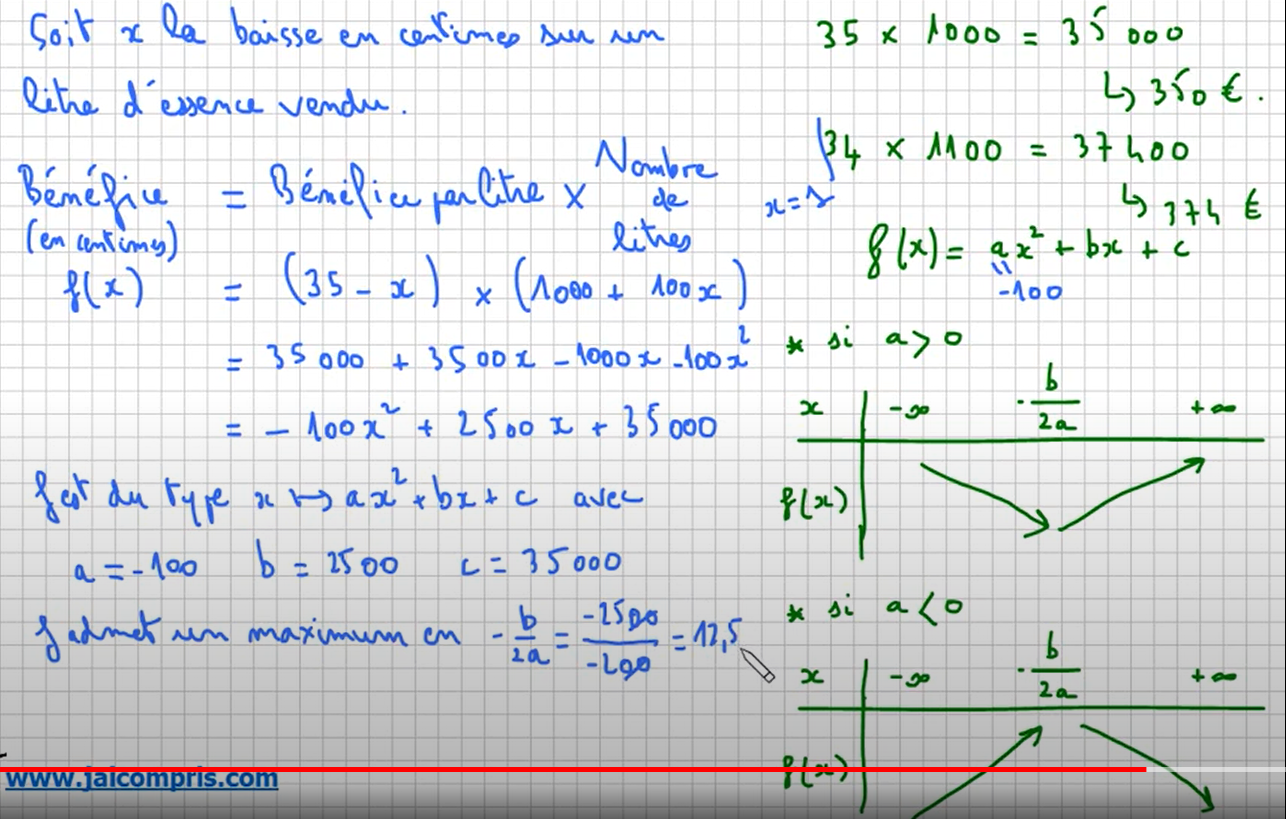 Soit x la baisse en centimes sur un
litre d'essence vendu.
Bénéfice = Bénéfice par litre × Nombre de litres
(en centimes)
f(x) = (35 - x) × (1000 + 100x)
= 35 000 + 3500x - 1000x - 100x²
= - 100x² + 2500x + 35000
f est du type x ↦ ax² + bx + c avec
a = -100 b = 2500 c = 35000
f admet un maximum en -b/2a = -2500/-200 = 12,5
35 × 1000 = 35 000
↳ 350 €.
34 × 1100 = 37400
x=1
↳ 374 €
f(x) = ax² + bx + c
-100
* si a > 0
x -∞ -b/2a +∞
f(x)
* si a < 0
x -∞ -b/2a +∞
f(x)
www.jaicompris.com